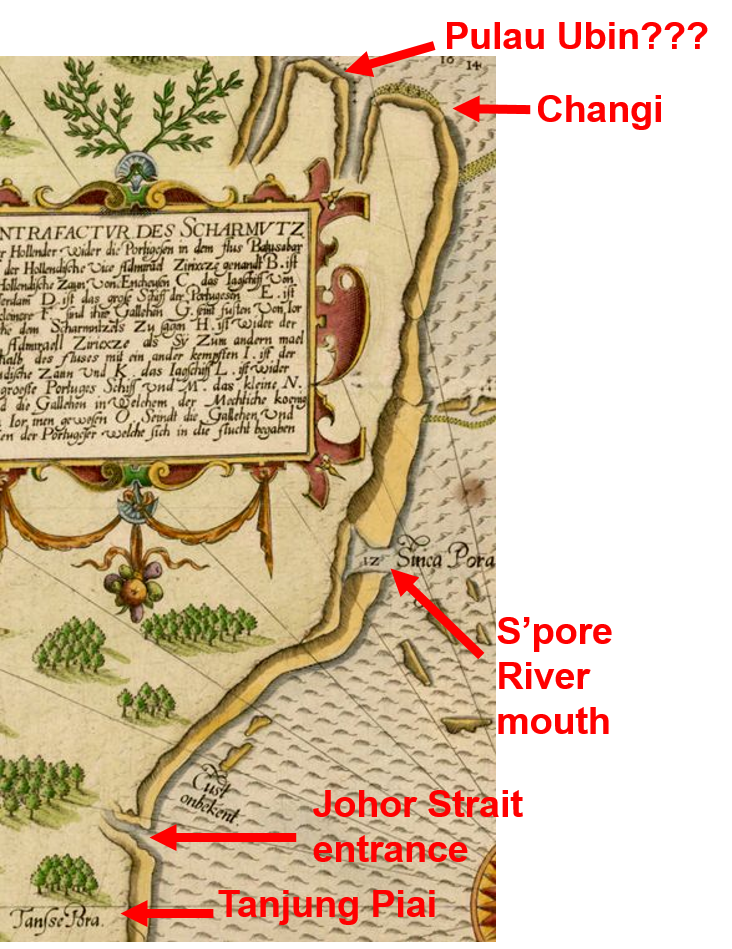 Pulau Ubin???
16 14
Changi
NTRAFACTVR DES SCHARMVTZ
r Hollender Wider die Portigesen in dem flus Batusabar
der Hollendische Vice Admirael Zirixcze genandt B. ist
Hollendische Zaun Von Encheusen C das Iagschiff Von
terdam D. ist das grose Schiff der Portugesen E. ist
kleinere F. sind ihre Gallehen G. seint fusten Von Ior
che dem Scharmutzels Zu sagen H. ist Wider der
Admiraell Zirixcze als Sy Zum andern mael
halb des fluses mit ein ander kempften I. ist der
ndische Zaun Vnd K. das Iagschif L. ist Wider
groeste Portuges Schiff Vnd M. das kleine N.
d die Gallehen in Welchem der Mechtiche koenig
Ior, men gewesen O. Seindt die Gallehen Vnd
en der Portugeser welche sich in die flucht begaben
12 Sinca Pora
S'pore
River
mouth
Cust
onbekent.
Johor Strait
entrance
Tanjung Piai
Tansse Pora.